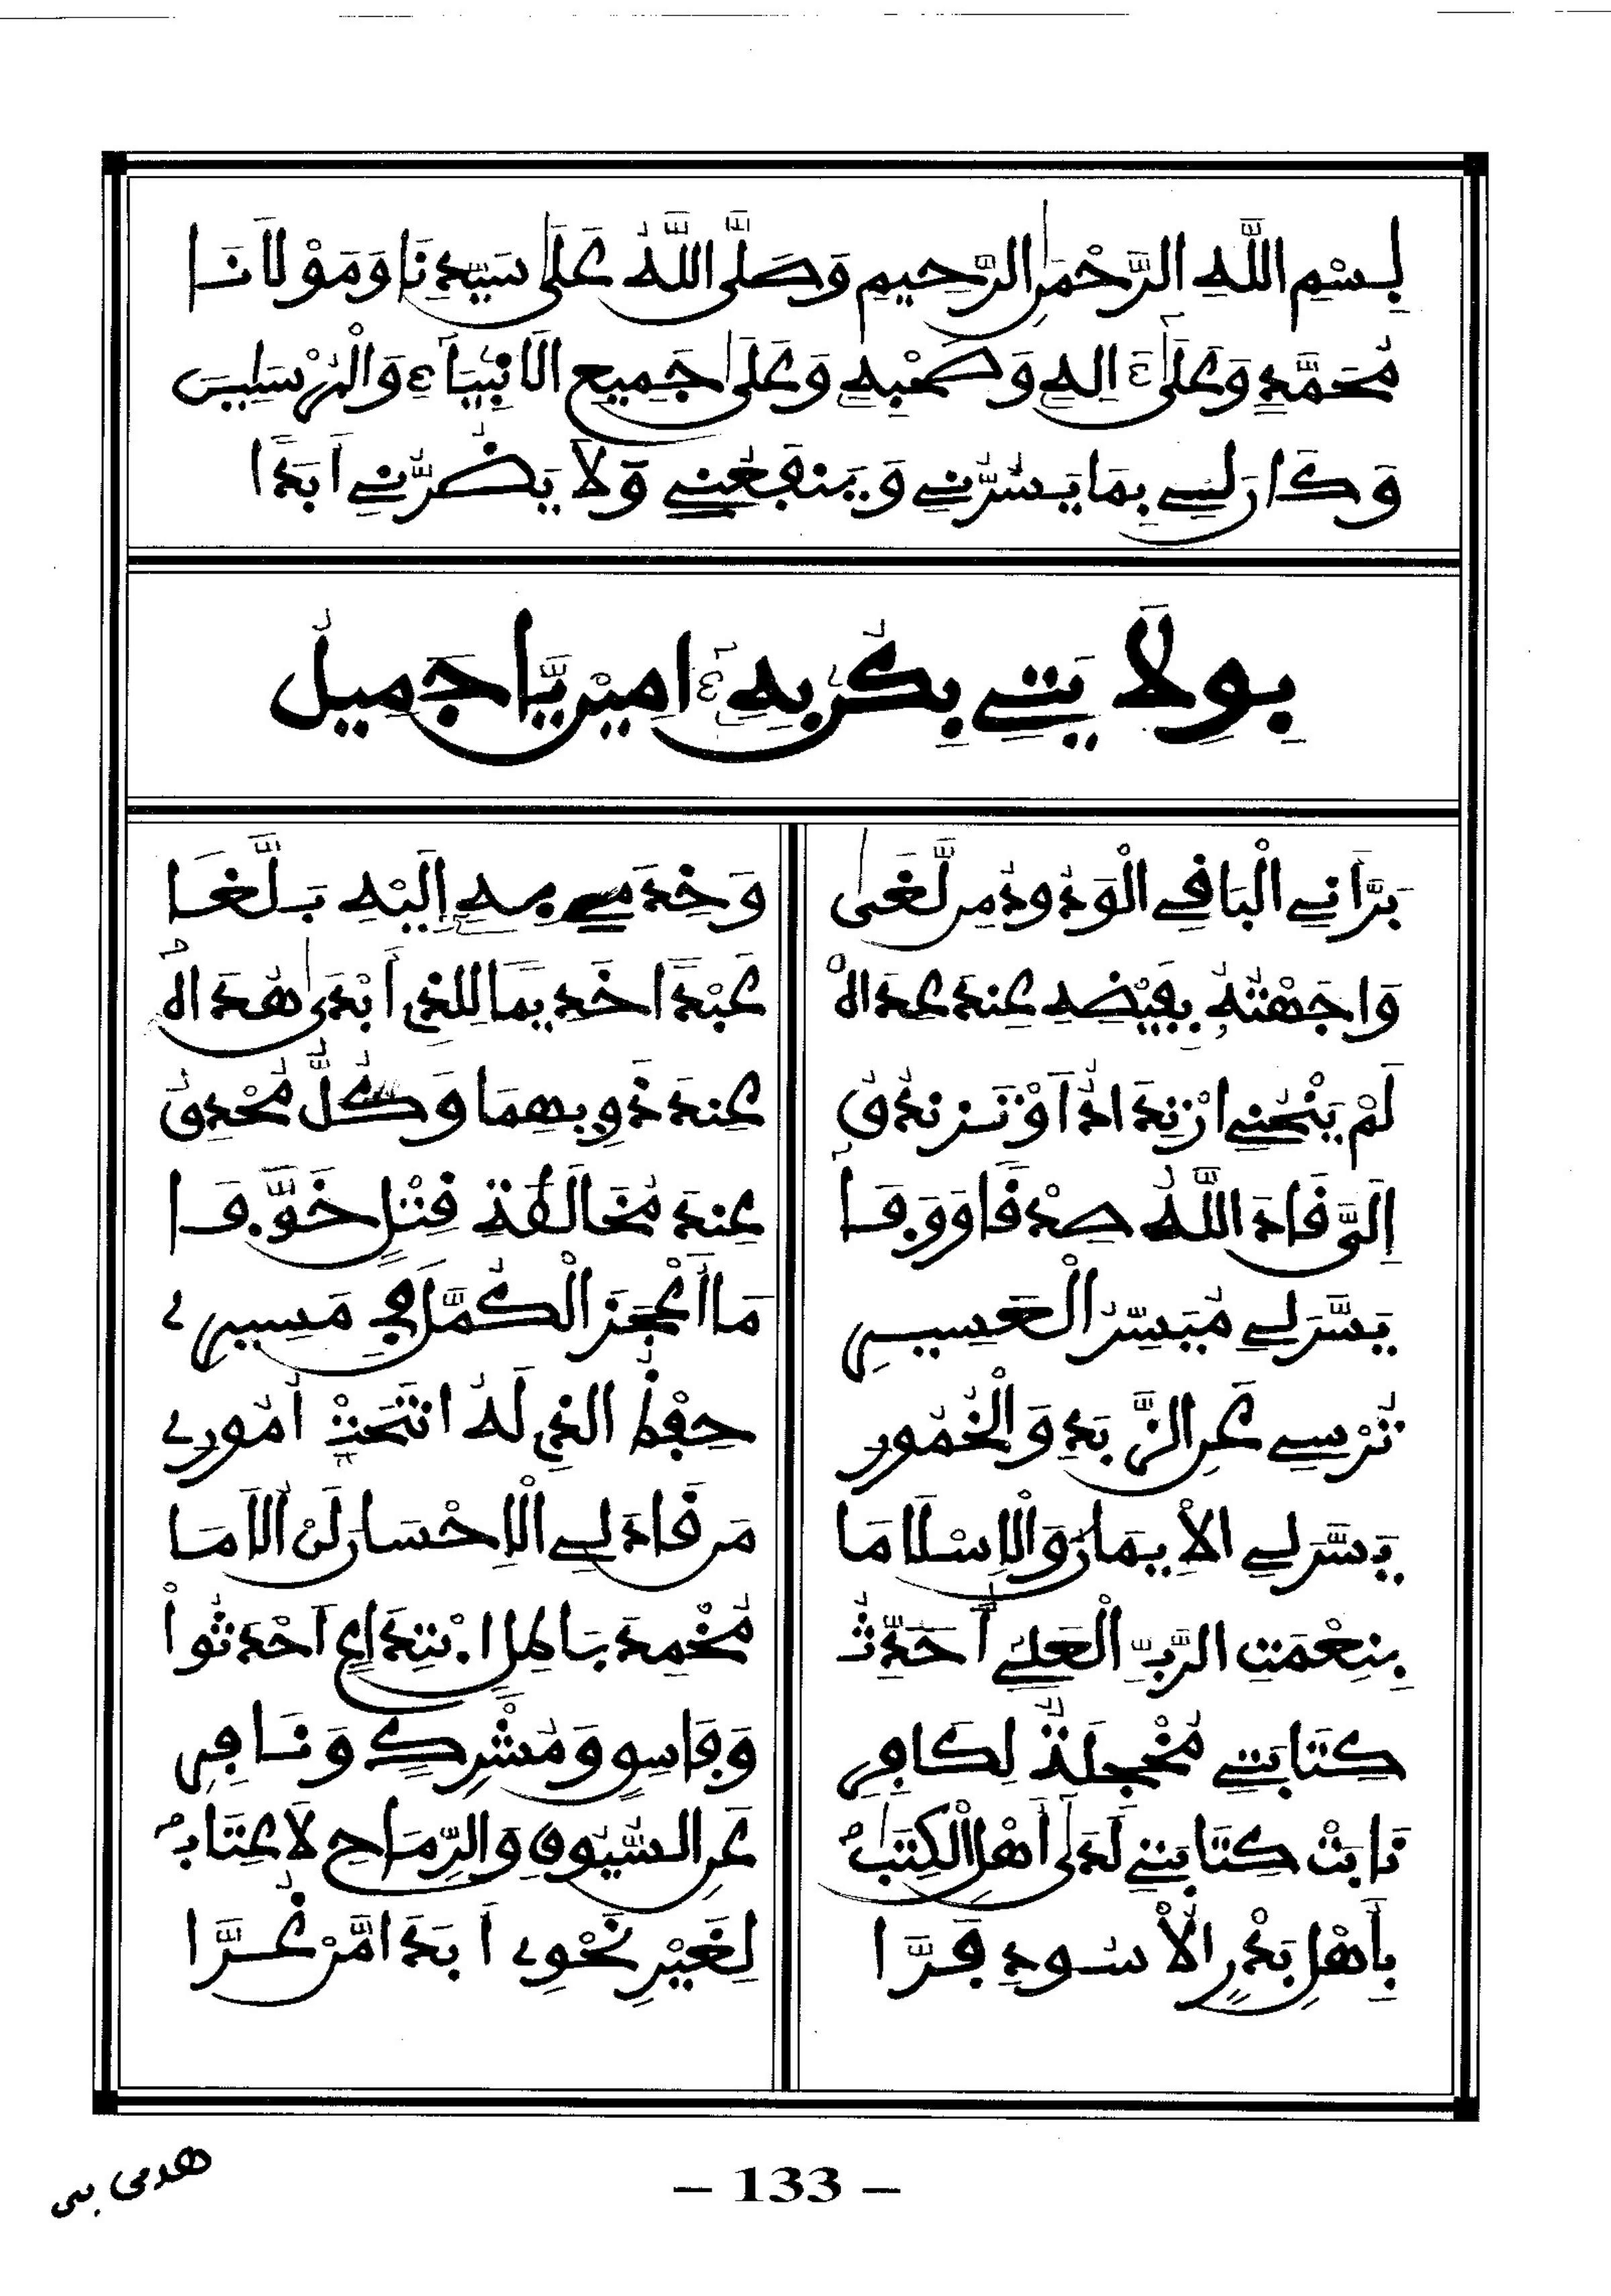 بِسْمِ اللَّهِ الرَّحْمَٰنِ الرَّحِيمِ وَصَلَّى اللَّهُ عَلَىٰ سَيِّدِنَا وَمَوْلَانَا
مُحَمَّدٍ وَعَلَىٰ ءَالِهِ وَصَحْبِهِ وَعَلَىٰ جَمِيعِ الَانْبِيَاءِ وَالْمُرْسَلِينَ
وَكَانَ لِي بِمَا يَسُرُّنِي وَيَنفَعُنِي وَلَا يَضُرُّنِي أَبَدًا
بِوِلَايَتِي بِكُنْ بِهِ ءَامِينْ يَا جَمِيلُ
بَرَّأَنِي الْبَاقِي الْوَدُودُ مِن لَّغَىٰ
وَخِدْمَتِي بِهِ إِلَيْهِ بَلَّغَا
وَاجَهْتُهُ بِفَيْضِهِ عِندَ عِدَاهْ
عَبْدًا خَدِيمًا لِلذِي أَبْدَىٰ هُدَاهْ
لَمْ يَنْحُنِي
عِندَ ذَوِيهِمَا وَكُلُّ مُحْدِقُ
إِلَيَّ قَادَ اللَّهُ صِدْقًا وَوَفَا
عِندَ مُخَالَفَةِ قِتْلٍ خَوَّفَا
يَسَّرَ لِي مُيَسِّرُ الْعَسِيرِ
مَا أَعْجَزَ الْكُمَّلَ فِي مَسِيرِي
تُرْسِي عَنِ الزَّبَدِ وَالْخُمُورِ
حِفْظُ الذِي لَهُ انْتَحَتْ أُمُورِي
يَسَّرَ لِي الْإِيمَانَ وَالْإِسْلَامَا
مَن قَادَ لِي الْإِحْسَانَ لَنْ أُلَامَا
بِنِعْمَتِ الرَّبِّ الْعَلِيِّ أُحَدِّثُ
مُخْمِدَ بَاطِلِ ابْتِدَاعٍ أَحْدَثُواْ
كِتَابَتِي مُخْجِلَةٌ لِكَافِرِ
وَفَاسِقٍ وَمُشْرِكٍ وَنَافِرِ
نَابَتْ كِتَابَتِي لَدَىٰ أَهْلِ الْكِتَٰبْ
عَنِ السُّيُوفِ وَالرِّمَاحِ لَا عِتَابْ
بِأَهْلِ بَدْرٍ الْأُسُودِ فَرَّا
لِغَيْرِ نَحْوِي أَبَدًا مَنْ غُرَّا
هدمى بى
– 133 –